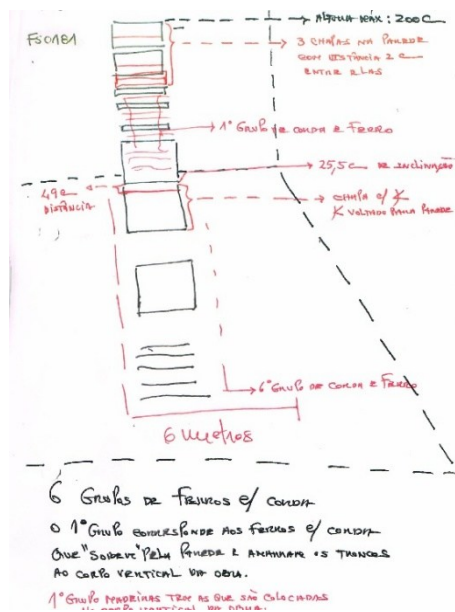 FSOA81
ALTURA MAX: 200C
3 CHAPAS NA PAREDE
COM DISTÂNCIA 2 C
ENTRE ELAS
1º GRUPO DE CORDA E FERRO
25,5C DE INCLINAÇÃO
49C
DISTÂNCIA
CHAPA C/
VOLTADO PARA PAREDE
6º GRUPO DE CORDA E FERRO
6 METROS
6 GRUPOS DE FERROS C/ CORDA
O 1º GRUPO CORRESPONDE AOS FERROS C/ CORDA
QUE "SOBEM" PELA PAREDE E AMARRAM OS TRONCOS
AO CORPO VERTICAL DA OBRA.
1º GRUPO MADEIRAS TROC AS QUE SÃO COLOCADAS
NO CORPO VERTICAL DA OBRA.